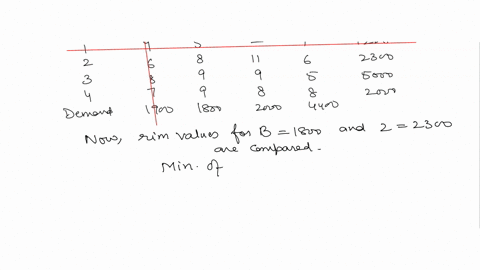 2 6 8 11 6 2300
3 8 9 9 5 5000
4 7 9 8 8 2000
Demand 1700 1800 2000 4400
Now, rim values for B = 1800 and 2 = 2300
are compared.
Min. of